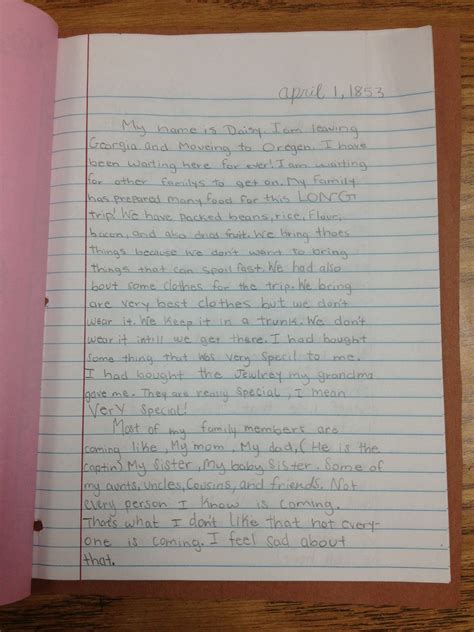 april 1, 1853
My name is Daisy. I am leaving
Georgia and Moveing to Oregen. I have
been waiting here for ever! I am waiting
for other familys to get on. My family
has prepared many food for this LONG
trip! We have packed beans, rice, flour,
bacon, and also dried fruit. We bring thoes
things because we don't want to bring
things that can spoil fast. We had also
bout some clothes for the trip. We bring
are very best clothes but we don't
wear it. We keep it in a trunk. We don't
wear it intill we get there. I had bought
some thing that was very specil to me.
I had bought the Jewlrey my grandma
gave me. They are really special, I mean
VERY special!
Most of my family members are
coming like, My mom, My dad, (He is the
captin) My sister, My baby sister. Some of
my aunts, uncles, cousins, and friends. Not
every person I know is coming.
That's what I don't like that not every-
one is coming. I feel sad about
that.